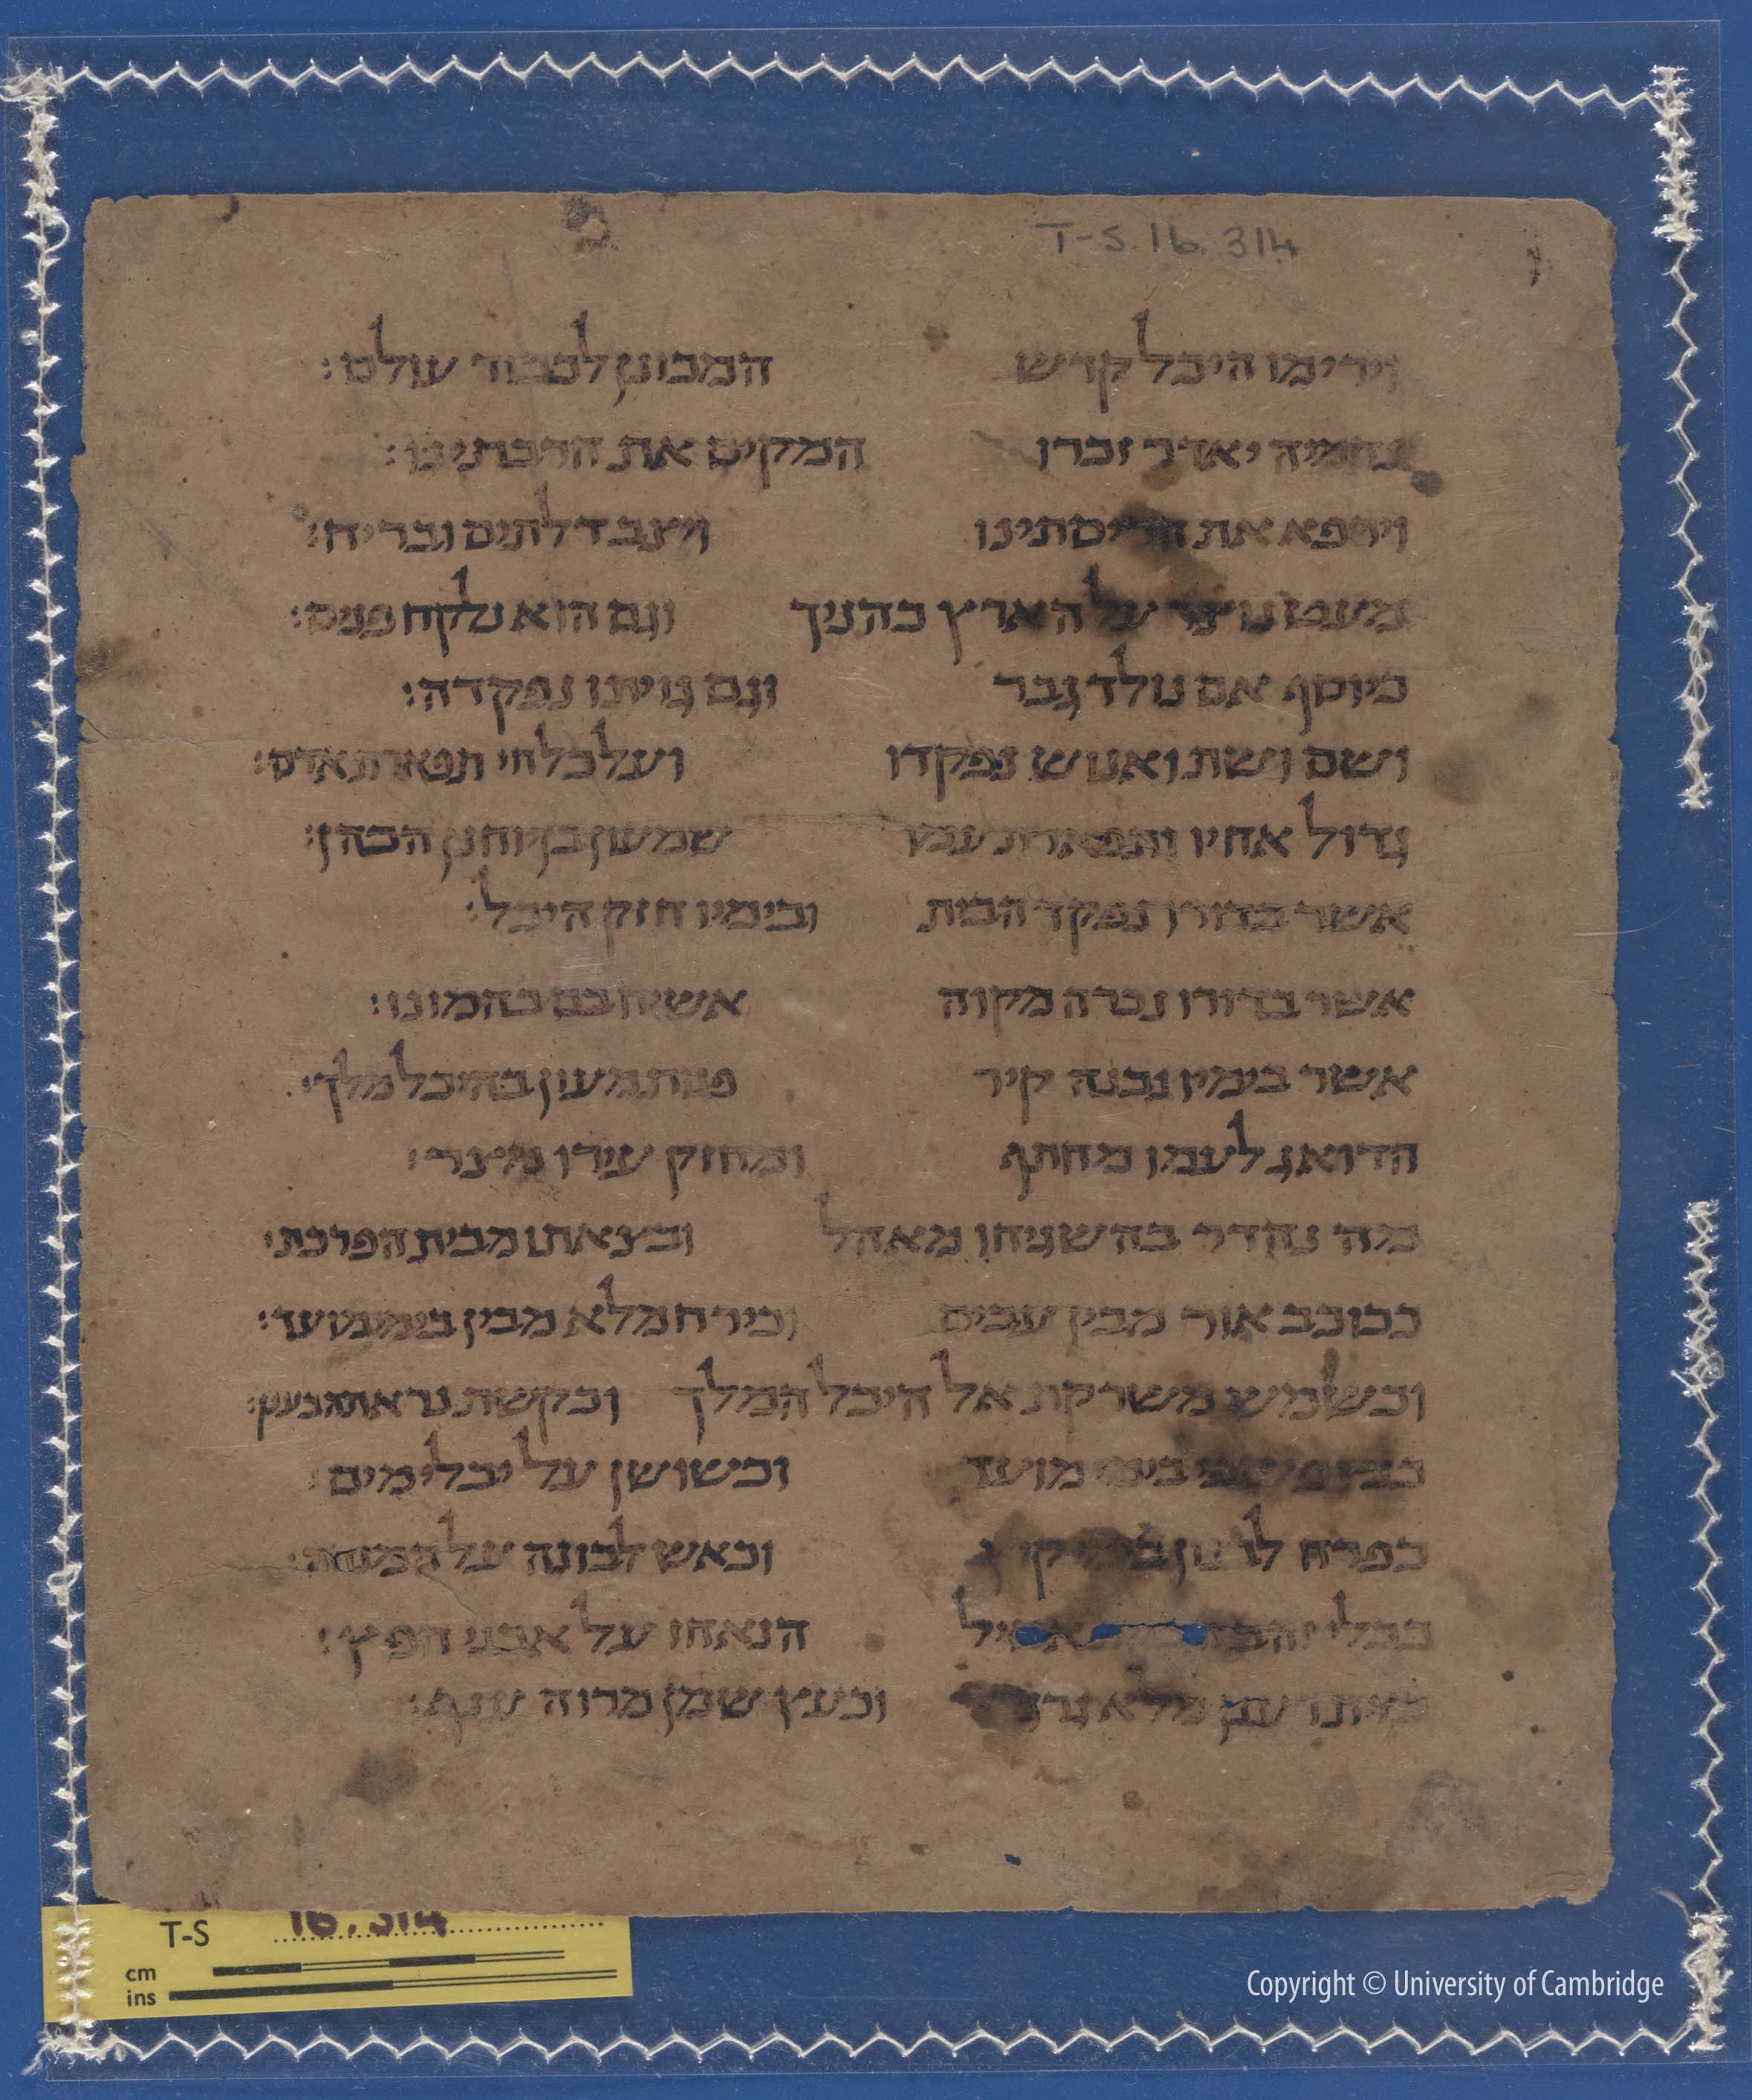 T-S.16.314
וירימו היכל קדש המכונן לכבוד עולם:
נחמיה יאדר זכרו המקים את חרבתינו:
וירפא את הריסתינו ויצב דלתים ובריח:
מעט נוצר על הארץ כהניך וגם הוא נלקח פנים:
כיוסף אם נולד גבר וגם גויתו נפקדה:
ושם ושת ואנוש נפקדו ועל כל חי תפארת אדם:
גדול אחיו ותפארת עמו שמעון בן יוחנן הכהן:
אשר בדורו נפקד הבית ובימיו חזק היכל:
אשר בדורו נכרה מקוה אשיח בם בהמונו:
אשר בימיו נבנה קיר פנות מעון בהיכל מלך:
הדואג לעמו מחתף ומחזק עירו מצר:
מה נהדר בהשגיחו מאהל ובצאתו מבית הפרכת:
ככוכב אור מבין עבים וכירח מלא מבין בימי מועד:
וכשמש משרקת אל היכל המלך וכקשת נראתה בענן:
בימי מועד וכשושן על יבלי מים:
כפרח לבנון בימי קיץ וכאש לבונה על המנחה:
ככלי זהב הנאחז על אבני חפץ:
כזית רענן מלא גרגר וכעץ שמן מרוה ענף:
T-S 16.314
cm
ins
Copyright © University of Cambridge